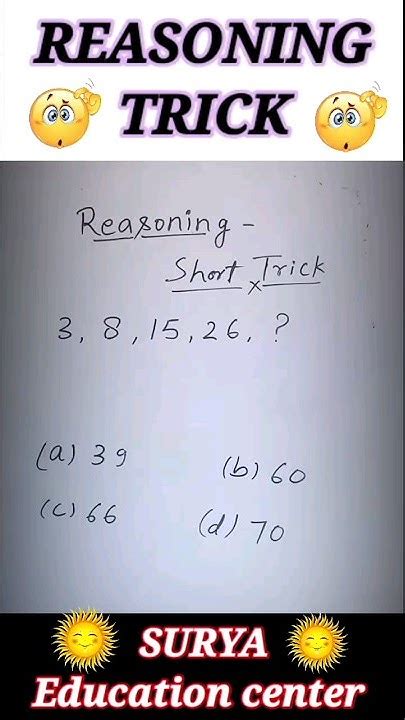 REASONING
TRICK
Reasoning -
Short Trick
x
3, 8, 15, 26, ?
(a) 39
(b) 60
(c) 66
(d) 70
SURYA
Education center